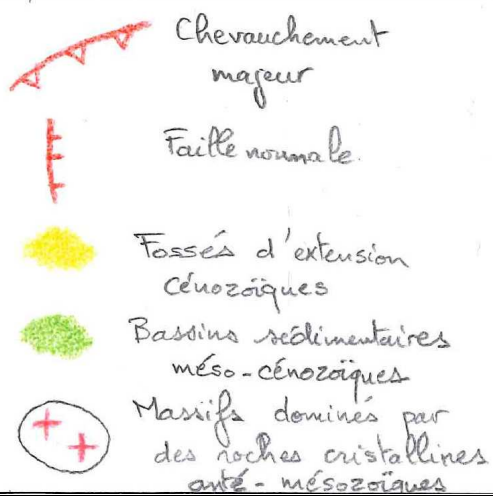 Chevauchement
majeur
Faille normale.
Fossés d'extension
cénozoïques
Bassins sédimentaires
méso-cénozoïques
Massifs dominés par
des roches cristallines
anté-mésozoïques